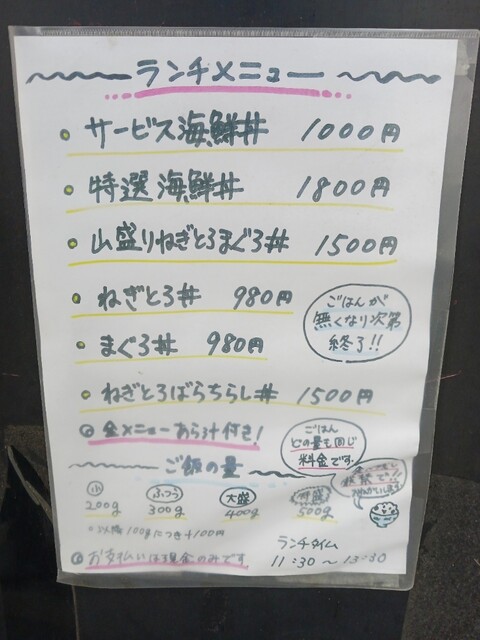 ランチメニュー
サービス海鮮丼 1000円
特選海鮮丼 1800円
山盛りねぎとろまぐろ丼 1500円
ねぎとろ丼 980円
まぐろ丼 980円
ごはんが
無くなり次第
終了!!
ねぎとろばらちらし丼 1500円
全メニューあら汁付き!
ごはん
どの量も同じ
料金です
ご飯の量
小 ふつう 大盛 特盛
200g 300g 400g 500g
*以降100gにつき+100円
お支払いは現金のみです
ランチタイム
11:30~13:30